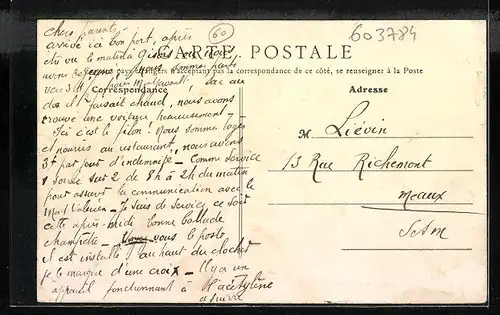 60
603784
Chers parents
arrivé ici bon port, après
été vu le matin à Gisors ou nous
avons déjeuné, nous sommes parti
vers 3h pour Montjavoult, sac au
dos il faisait chaud, nous avons
trouvé une voiture heureusement -
Ici c'est le filon! Nous somme logés
et nourris au restaurant, nous avons
3f par jour d'indemnité - Comme Service
1 Soirée sur 2 de 8h à 2h du matin
pour assurer la communication avec le
Mont Valérien - Je suis de service ce soir
cette après-midi bonne ballade
champêtre - vous le poste
il est installé au haut du clocher
je le marque d'une croix - Il y a un
appareil fonctionnant à l'acétylène
à suivre
CARTE POSTALE
pays étrangers n'acceptant pas la correspondance de ce côté, se renseigner à la Poste
Correspondance
Adresse
M. Liévin
13 Rue Richemont
Meaux
S et M